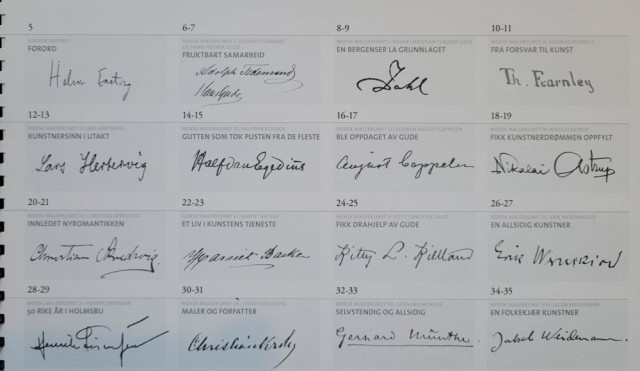 5
6-7
8-9
10-11
FORORD
FRUKTBART SAMARBEID
EN BERGENSER LA GRUNNLAGET
FRA FORSVAR TIL KUNST
Adolph Tidemand
Hans Gude
Dahl
Th. Fearnley
12-13
14-15
16-17
18-19
KUNSTNERSINN I UTAKT
GUTTEN SOM TOK PUSTEN FRA DE FLESTE
BLE OPPDAGET AV GUDE
FIKK KUNSTNERDRØMMEN OPPFYLT
Lars Hertervig
Halfdan Egedius
August Cappelen
Nikolai Astrup
20-21
22-23
24-25
26-27
INNLEDET NYROMANTIKKEN
ET LIV I KUNSTENS TJENESTE
FIKK DRAHJELP AV GUDE
EN ALLSIDIG KUNSTNER
Christian Skredsvig.
Harriet Backer
Kitty L. Kielland
Erik Werenskiold
28-29
30-31
32-33
34-35
50 RIKE ÅR I HOLMSBU
MALER OG FORFATTER
SELVSTENDIG OG ALLSIDIG
EN FOLKEKJÆR KUNSTNER
Henrik Sørensen
Christian Krohg
Gerhard Munthe.
Jakob Weidemann.